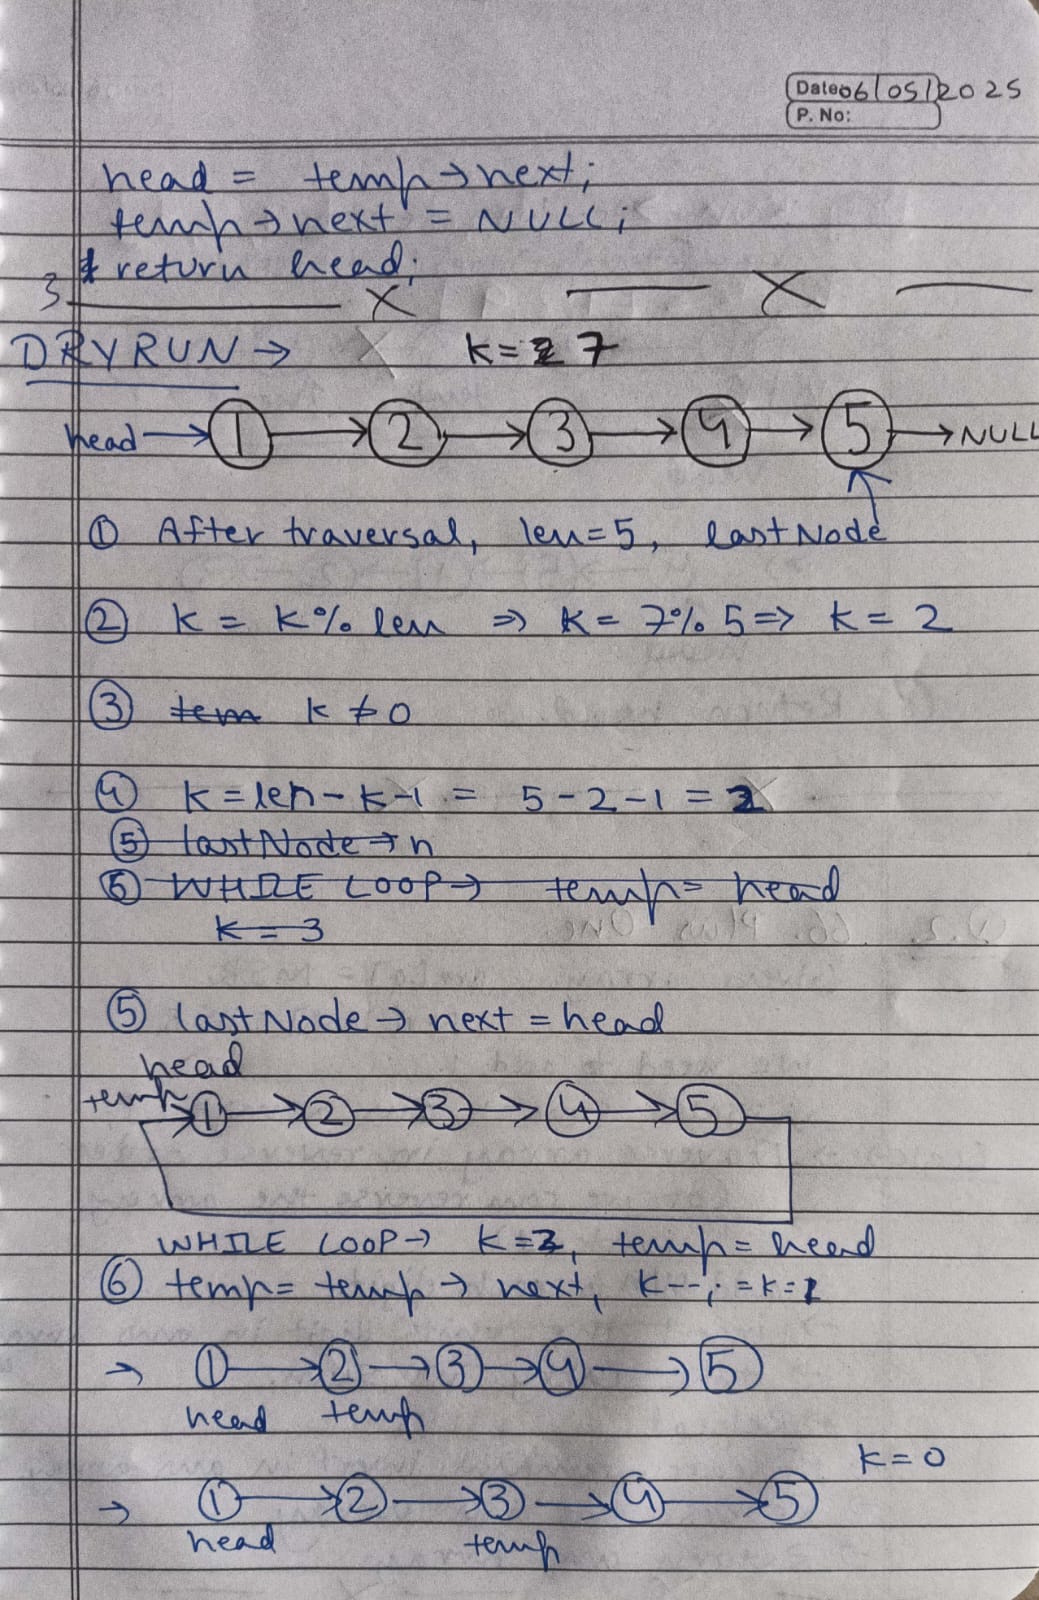 Date 06/05/2025
P. No:
head = temp→next;
temp→next = NULL;
return head;
}
DRY RUN → k = 7
head → 1 → 2 → 3 → 4 → 5 → NULL
① After traversal, len=5, last Node
② k = k % len ⇒ k = 7 % 5 ⇒ k = 2
③ tem k ≠ 0
④ k = len - k - 1 = 5 - 2 - 1 = 2
⑤ last Node → n
⑥ WHILE LOOP → temp = head
k = 3
⑤ last Node → next = head
head
temp → 1 → 2 → 3 → 4 → 5
WHILE LOOP → k = 2, temp = head
⑥ temp = temp → next, k--; = k = 1
→ 1 → 2 → 3 → 4 → 5
head temp
k = 0
→ 1 → 2 → 3 → 4 → 5
head temp